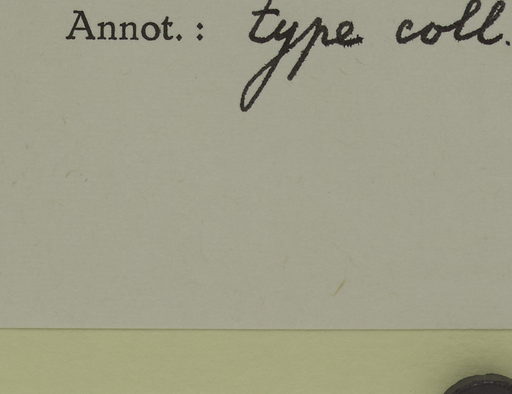 Annot. : type coll.